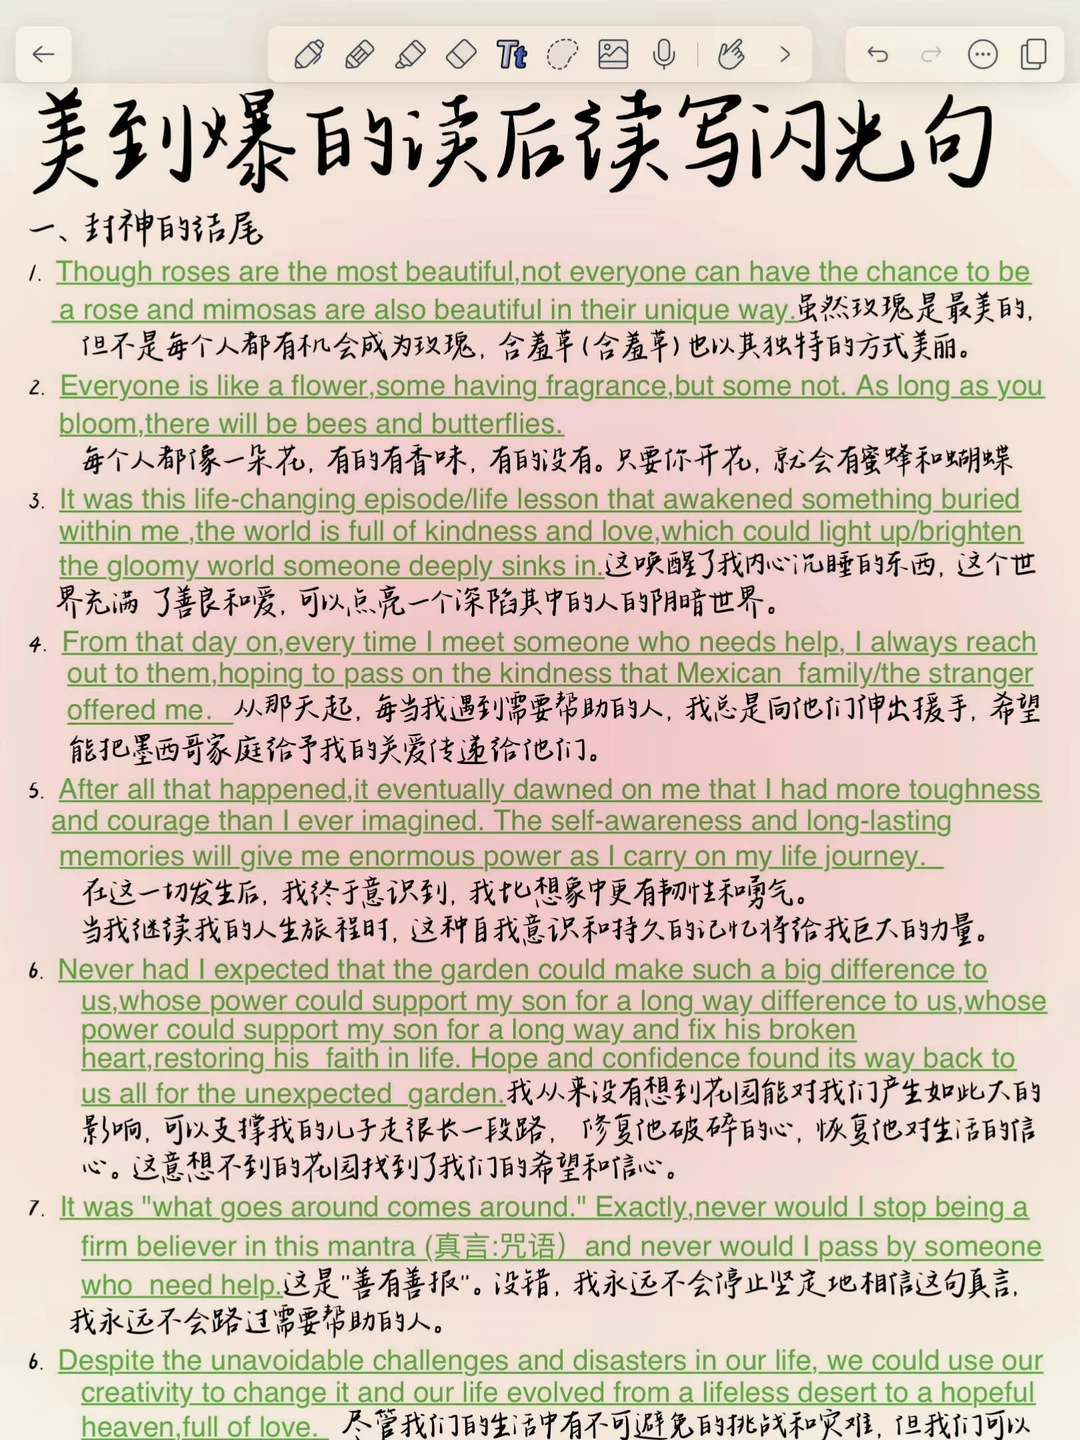 Tt
美到爆的读后续写闪光句
一、封神的结尾
1. Though roses are the most beautiful,not everyone can have the chance to be
a rose and mimosas are also beautiful in their unique way.虽然玫瑰是最美的,
但不是每个人都有机会成为玫瑰, 含羞草(含羞草)也以其独特的方式美丽。
2. Everyone is like a flower,some having fragrance,but some not. As long as you
bloom,there will be bees and butterflies.
每个人都像一朵花, 有的有香味, 有的没有。只要你开花, 就会有蜜蜂和蝴蝶
3. It was this life-changing episode/life lesson that awakened something buried
within me ,the world is full of kindness and love,which could light up/brighten
the gloomy world someone deeply sinks in.这唤醒了我内心沉睡的东西, 这个世
界充满 了善良和爱, 可以点亮一个深陷其中的人的阴暗世界。
4. From that day on,every time I meet someone who needs help, I always reach
out to them,hoping to pass on the kindness that Mexican family/the stranger
offered me. 从那天起, 每当我遇到需要帮助的人, 我总是向他们伸出援手, 希望
能把墨西哥家庭给予我的关爱传递给他们。
5. After all that happened,it eventually dawned on me that I had more toughness
and courage than I ever imagined. The self-awareness and long-lasting
memories will give me enormous power as I carry on my life journey.
在这一切发生后, 我终于意识到, 我比想象中更有韧性和勇气。
当我继续我的人生旅程时, 这种自我意识和持久的记忆将给我巨大的力量。
6. Never had I expected that the garden could make such a big difference to
us,whose power could support my son for a long way difference to us,whose
power could support my son for a long way and fix his broken
heart,restoring his faith in life. Hope and confidence found its way back to
us all for the unexpected garden.我从来没有想到花园能对我们产生如此大的
影响, 可以支撑我的儿子走很长一段路, 修复他破碎的心, 恢复他对生活的信
心。这意想不到的花园找到了我们的希望和信心。
7. It was "what goes around comes around." Exactly,never would I stop being a
firm believer in this mantra (真言:咒语） and never would I pass by someone
who need help.这是"善有善报"。没错, 我永远不会停止坚定地相信这句真言,
我永远不会路过需要帮助的人。
6. Despite the unavoidable challenges and disasters in our life, we could use our
creativity to change it and our life evolved from a lifeless desert to a hopeful
heaven,full of love. 尽管我们的生活中有不可避免的挑战和灾难, 但我们可以